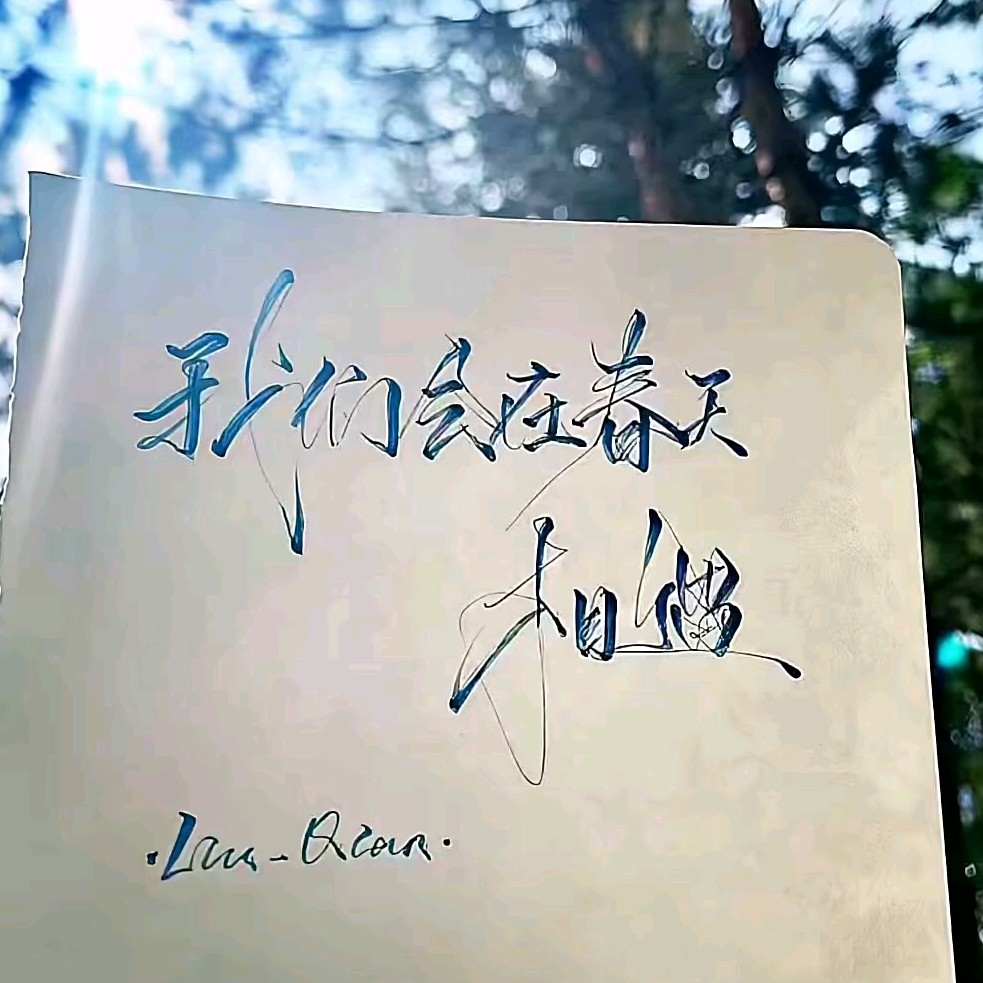 我们会在春天
相遇